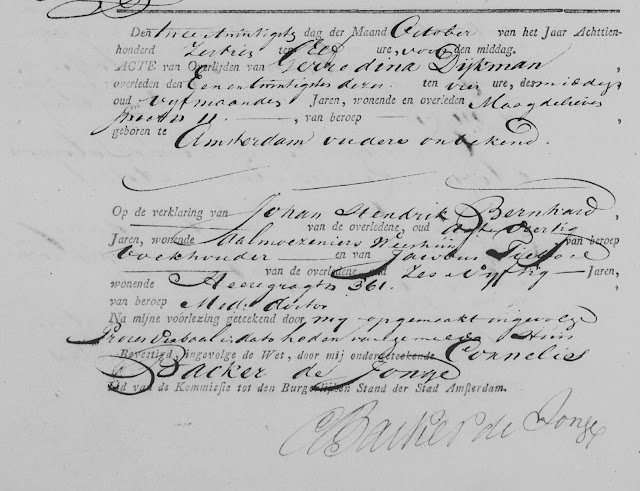 Den twee entwintigste dag der Maand October van het Jaar Achttien-
honderd Zestien ten Elf ure, voor den middag.
ACTE van Overlijden van Gerredina Dijkman
overleden den Eenentwintigste dezer ten vier ure, des middags
oud vijf maanden Jaren, wonende en overleden Maagdelieve
straat N 11. van beroep
geboren te Amsterdam verdere onbekend.
Op de verklaring van Johan Hendrik Bernhard,
van de overledene, oud veertig
Jaren, wonende Aalmoezeniers Weeshuis van beroep
boekhouder en van Jacobus
van de overledene, oud Zes en Vijftig Jaren,
wonende Heeregragt 361.
van beroep Med: doctor
Na mijne voorlezing geteekend door my opgemaakt ingevolge
Proces verbaal in dato heden van gemeld Huis
Bevestigd, ingevolge de Wet, door mij ondergeteekende Cornelis
Backer de Jonge
Lid van de Kommissie tot den Burgerlijken Stand der Stad Amsterdam.
C Backer de Jonge